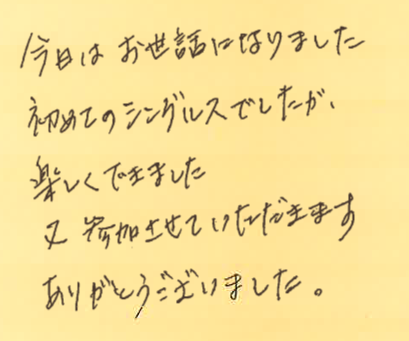 今日はお世話になりました
初めてのシングルスでしたが、
楽しくできました
又参加させていただきます
ありがとうございました。